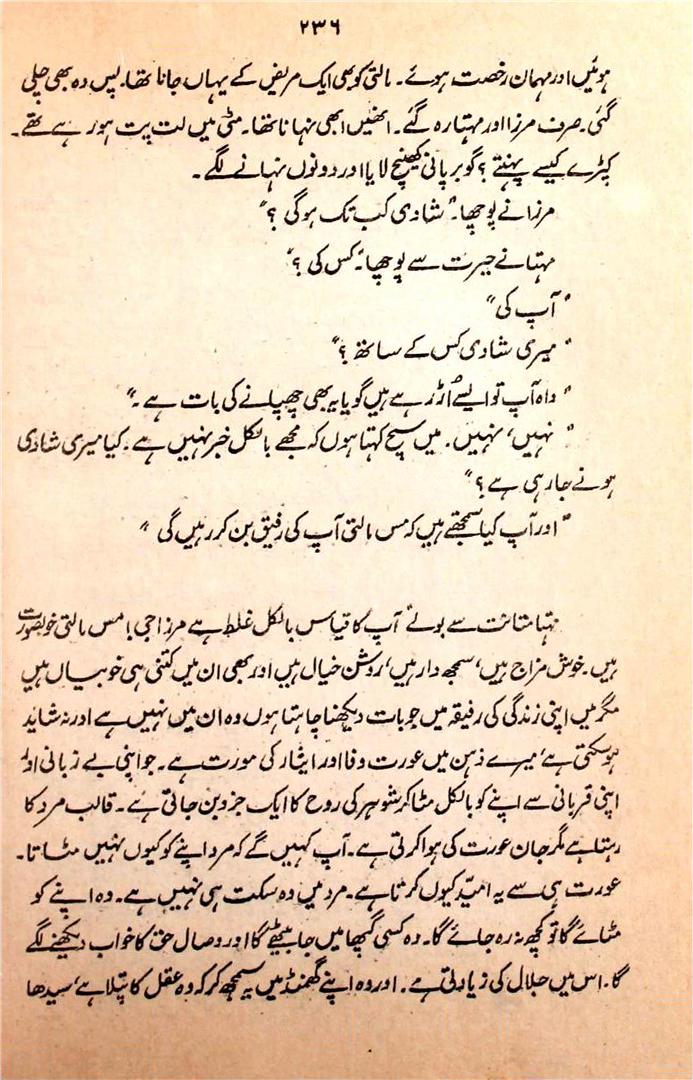 ۲۳۶
ہوئیں اور مہمان رخصت ہوئے۔ مالتی کو بھی ایک مریض کے یہاں جانا تھا۔ پس وہ بھی چلی
گئی۔ صرف مرزا اور مہتا رہ گئے۔ انھیں ابھی نہانا تھا۔ مٹی میں لت پت ہو رہے تھے۔
کپڑے کیسے پہنتے؟ گوبر پانی کھینچ لایا اور دونوں نہانے لگے۔
مرزا نے پوچھا۔ "شادی کب تک ہوگی؟"
مہتا نے حیرت سے پوچھا۔ "کس کی؟"
"آپ کی"
"میری شادی کس کے ساتھ؟"
"واہ آپ تو ایسے اُڑ رہے ہیں گویا یہ بھی چھپانے کی بات ہے۔"
"نہیں، نہیں۔ میں سچ کہتا ہوں کہ مجھے بالکل خبر نہیں ہے۔ کیا میری شادی
ہونے جا رہی ہے؟"
"اور آپ کیا سمجھتے ہیں کہ مس مالتی آپ کی رفیق بن کر رہیں گی"
مہتا متانت سے بولے "آپ کا قیاس بالکل غلط ہے مرزا جی! مس مالتی خوبصورت
ہیں۔ خوش مزاج ہیں، سمجھ دار ہیں، روشن خیال ہیں اور بھی ان میں کتنی ہی خوبیاں ہیں
مگر میں اپنی زندگی کی رفیقہ میں جو بات دیکھنا چاہتا ہوں وہ ان میں نہیں ہے اور نہ شاید
ہو سکتی ہے، میرے ذہن میں عورت وفا اور ایثار کی مورت ہے۔ جو اپنی بے زبانی اور
اپنی قربانی سے اپنے کو بالکل مٹا کر شوہر کی روح کا ایک جزو بن جاتی ہے۔ قالب مرد کا
رہتا ہے مگر جان عورت کی ہوا کرتی ہے۔ آپ کہیں گے کہ مرد اپنے کو کیوں نہیں مٹاتا۔
عورت ہی سے یہ امید کیوں کرتا ہے۔ مرد میں وہ سکت ہی نہیں ہے۔ وہ اپنے کو
مٹائے گا تو کچھ نہ رہ جائے گا۔ وہ کسی گپھا میں جا بیٹھے گا اور وصال حق کا خواب دیکھنے لگے
گا۔ اس میں جلال کی زیادتی ہے۔ اور وہ اپنے گھمنڈ میں یہ سمجھ کر کہ وہ عقل کا پتلا ہے، سیدھا